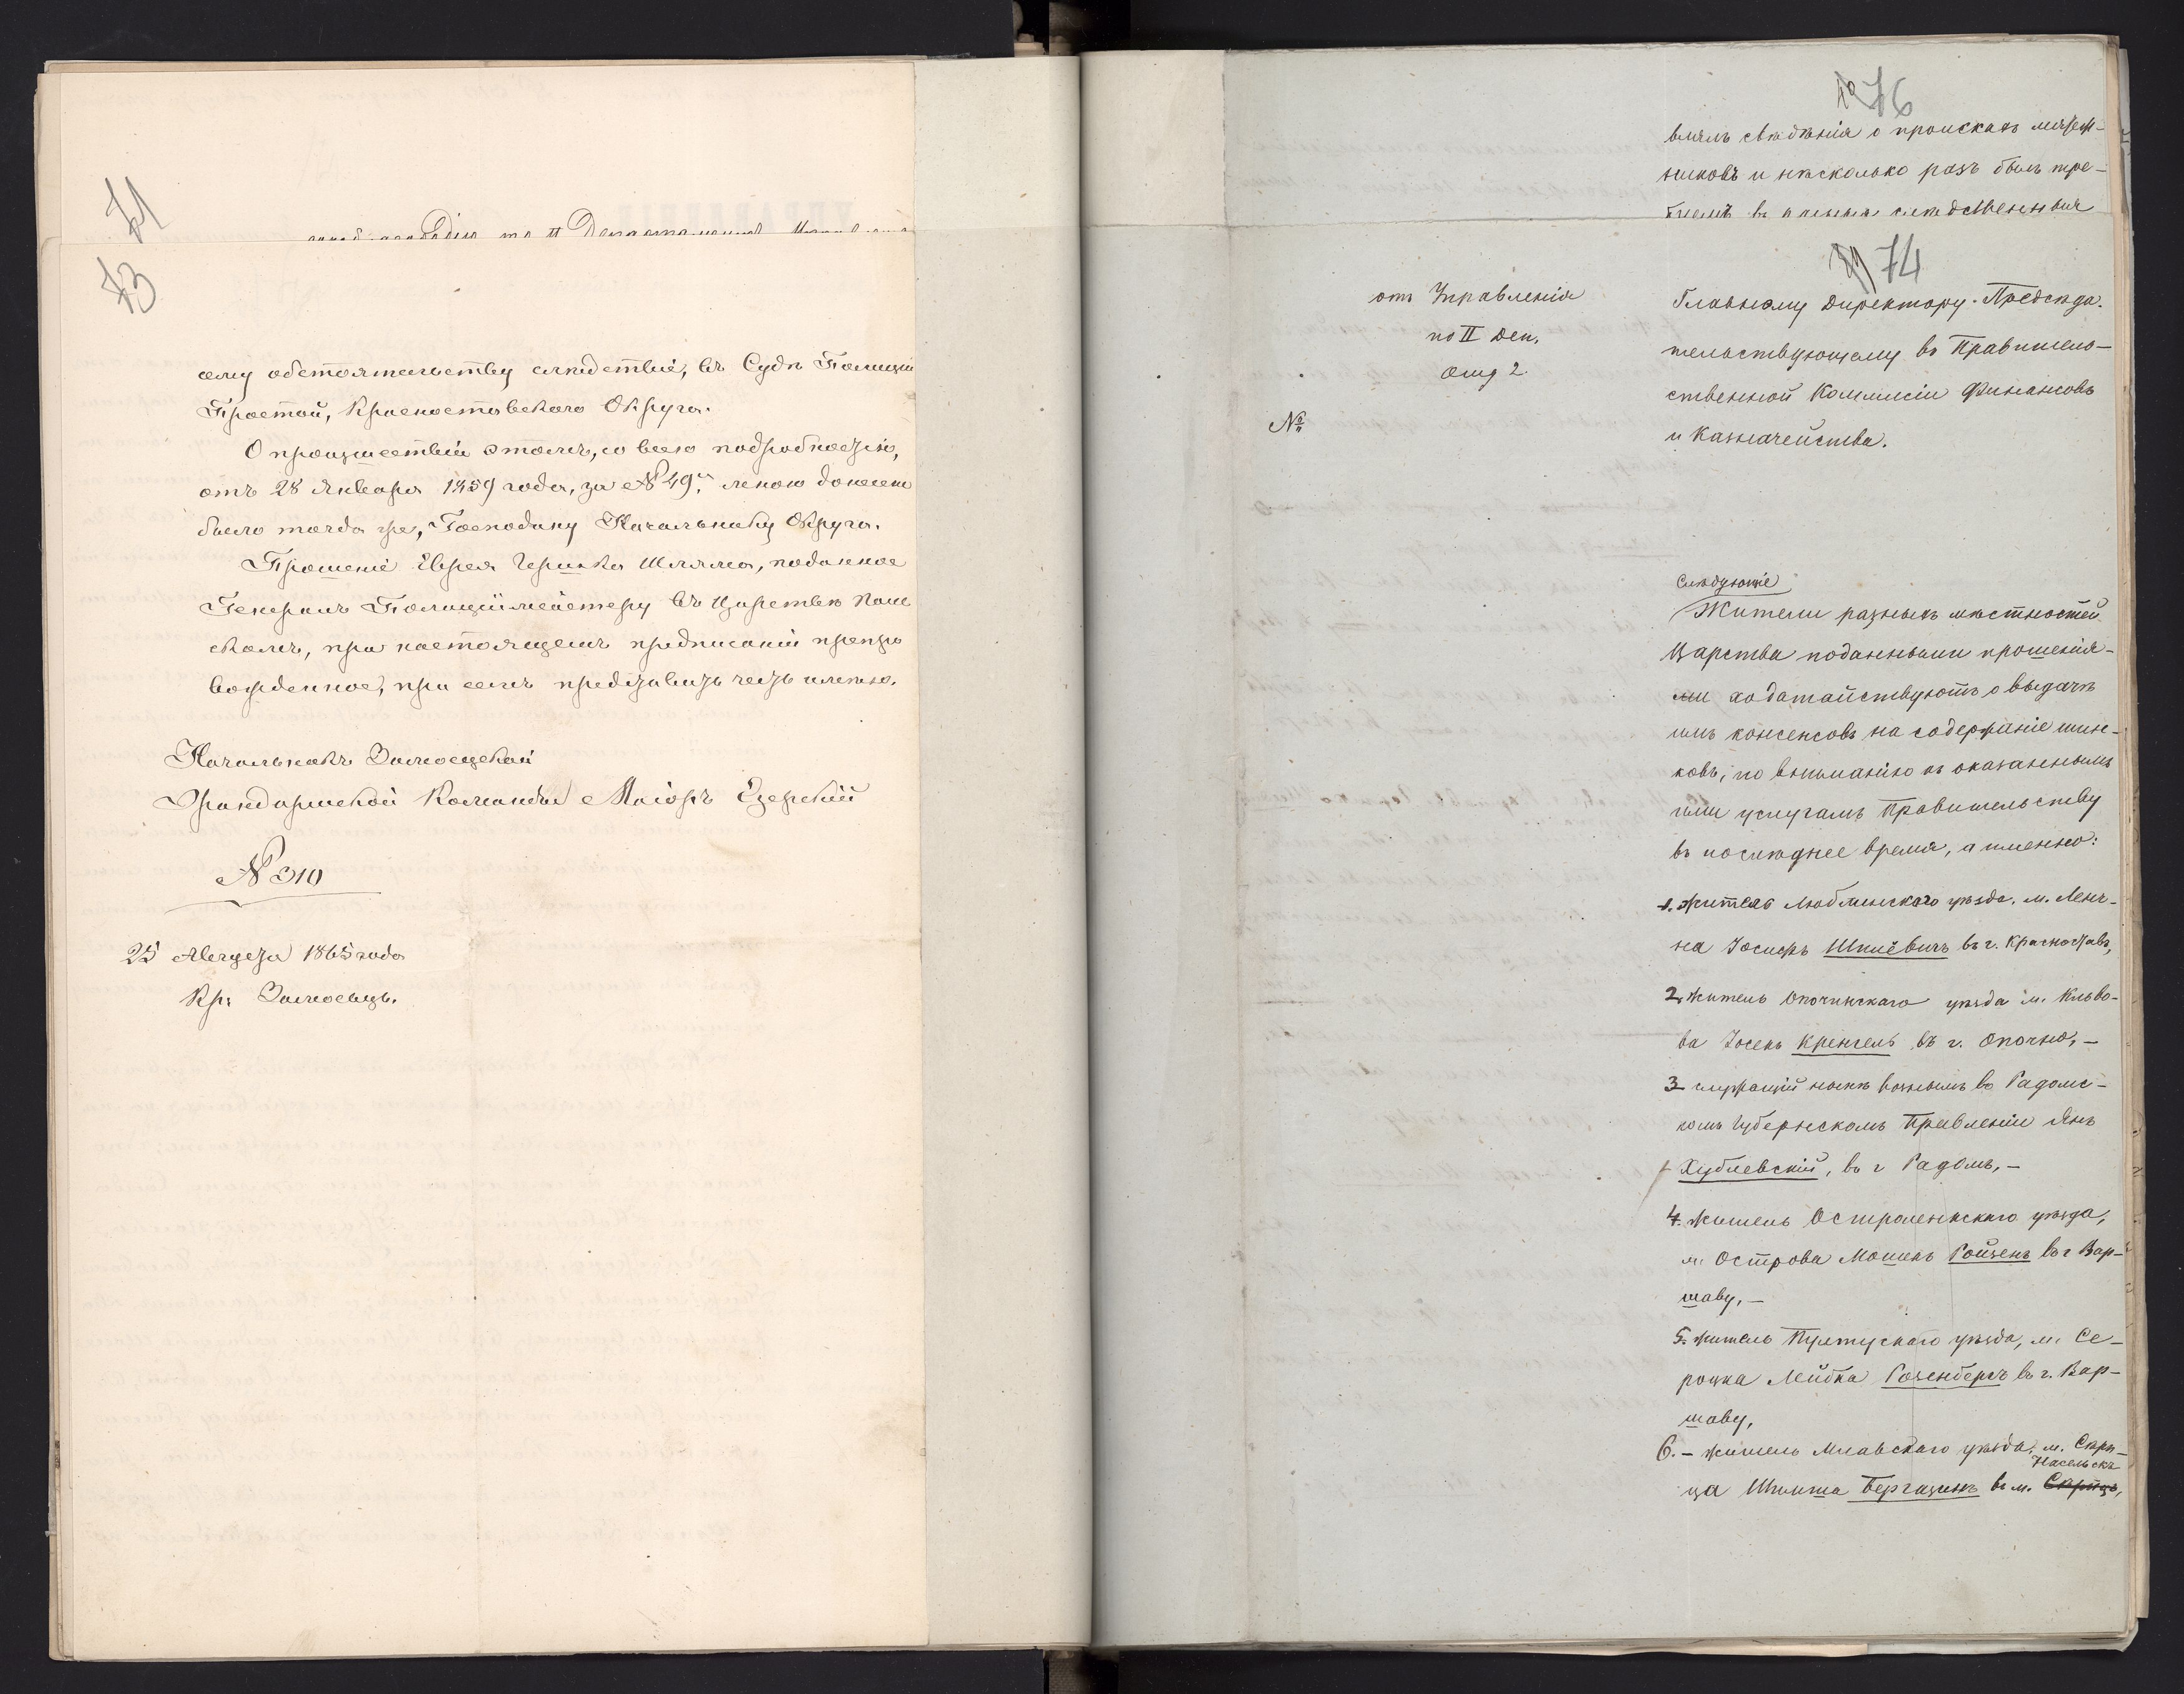 71
73
сему обстоятельству слѣдствіе, въ Судѣ Полиціи
Простой, Красноставскаго Округа.
О происшествіи этомъ, со всею подробностью,
отъ 28 Января 1859 года, за № 49, мною донесено
было тогда же, Господину Начальнику Округа.
Прошеніе Еврея Гершка Шляма, поданное
Генералъ Полиціймейстеру въ Царствѣ Поль
скомъ, при настоящемъ предписаніи препро
вожденное, при семъ представить честь имѣю.
Начальникъ Замосцской
Жандармской Команды Маіоръ Езерскій
№ 310
25 Августа 1865 года
Кр: Замосцьъ.
76
влялъ свѣдѣнія о проискахъ мятеж-
никовъ и нѣсколько разъ былъ тре-
74
отъ Управленія
по II Деп.
Отд 2
№
Главному Директору-Предсѣда-
тельствующему въ Правитель-
ственной Коммисіи Финансовъ
и Казначейства.
Слѣдующіе
Жители разныхъ мѣстностей
Царства поданными прошенія-
ми ходатайствуютъ о выдачѣ
имъ консенсовъ на содержаніе шин-
ковъ, по вниманію къ оказаннымъ
ими услугамъ Правительству
въ послѣднее время, а именно:
1. Житель Люблинскаго уѣзда, м. Ленч-
на Іосифъ Шпиёвичъ въ г. Красноставъ,
2. Житель Опочинскаго уѣзда м. Кльво-
ва Іосекъ Кренгель въ г. Опочно, —
3 служащій нынѣ вознымъ въ Радомс-
комъ Губернскомъ Правленіи Янъ
Хублевскій, въ г Радомъ, —
4. Житель Остроленкскаго уѣзда,
м. Острова Мошекъ Ройзенъ въ г Вар-
шаву, —
5. Житель Пултускаго уѣзда, м. Се-
роцка Лейбка Розенбергъ въ г. Вар-
шаву,
6. — Житель Млавскаго уѣзда, м. Скры-
Насельскъ
ца Шимша Бергазинъ въ м. Скрыцъ,